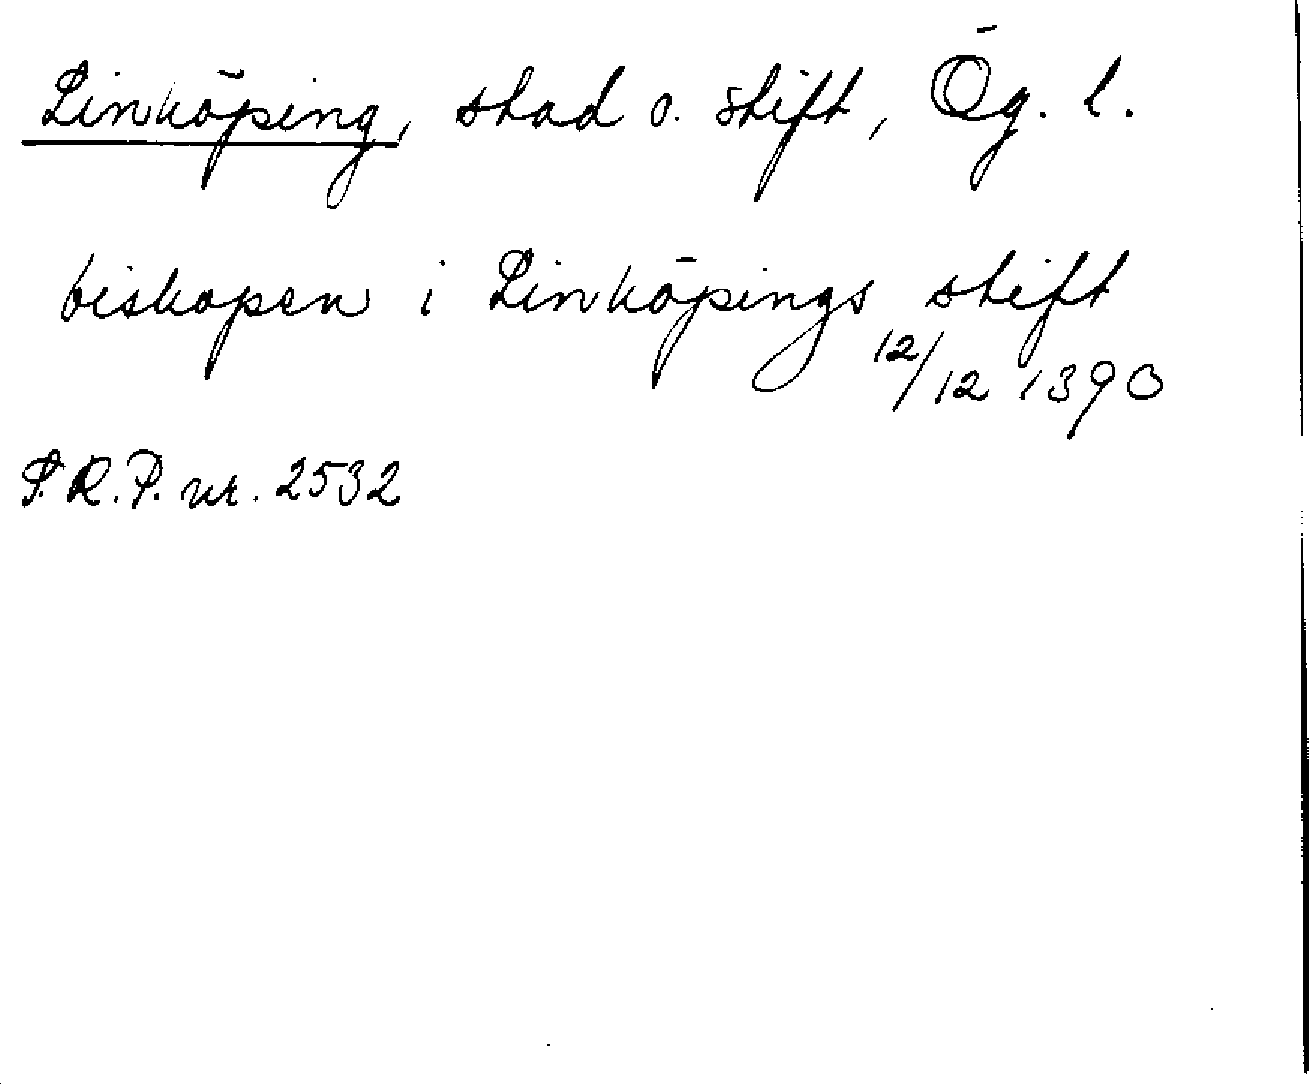 Linköping, stad o. stift, Ög. l.
biskopen i Linköpings stift
12/12 1390
S.R.P. nr. 2532